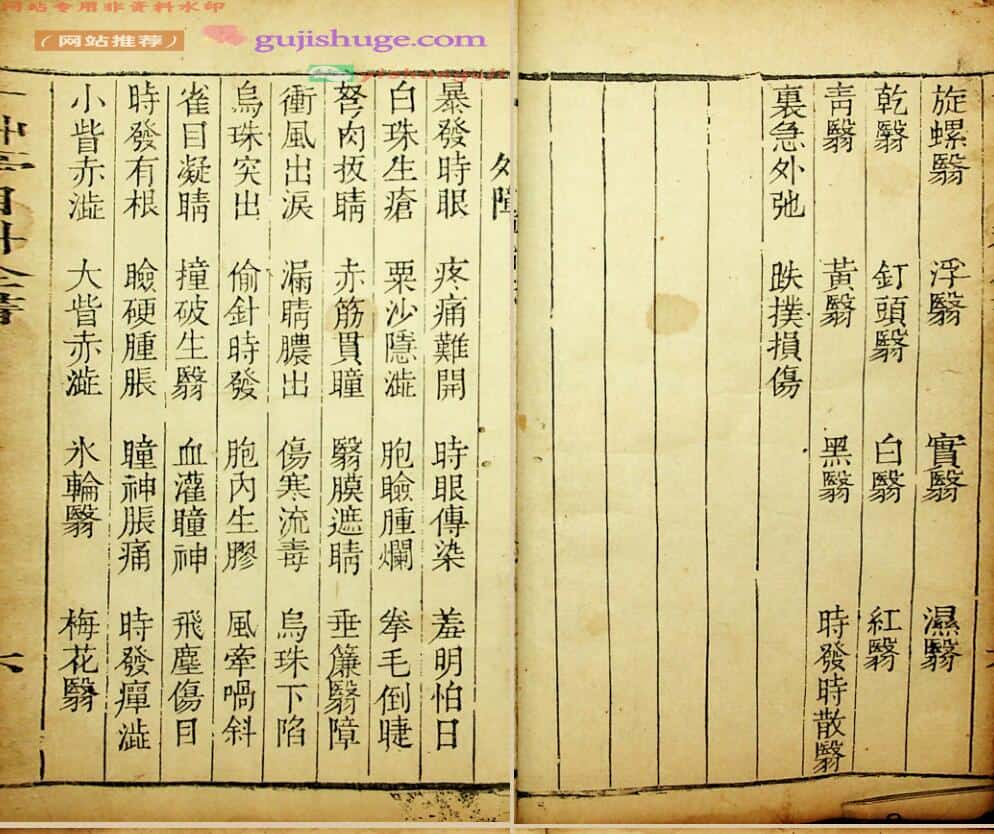 网站专用非资料水印
(网站推荐)
gujishuge.com
旋螺翳 浮翳 實翳 濕翳
乾翳 釘頭翳 白翳 紅翳
靑翳 黃翳 黑翳 時發時散翳
裏急外弛 跌撲損傷
外障
暴發時眼 疼痛難開 時眼傳染 羞明怕日
白珠生瘡 粟沙隱澁 胞瞼腫爛 拳毛倒睫
努肉扳睛 赤筋貫瞳 翳膜遮睛 垂簾翳障
衝風出淚 漏睛膿出 傷寒流毒 烏珠下陷
烏珠突出 偷針時發 胞內生膠 風牽喎斜
雀目凝睛 撞破生翳 血灌瞳神 飛塵傷目
時發有根 瞼硬腫脹 瞳神脹痛 時發癉澁
小眥赤澁 大眥赤澁 氷輪翳 梅花翳
目科全書
六